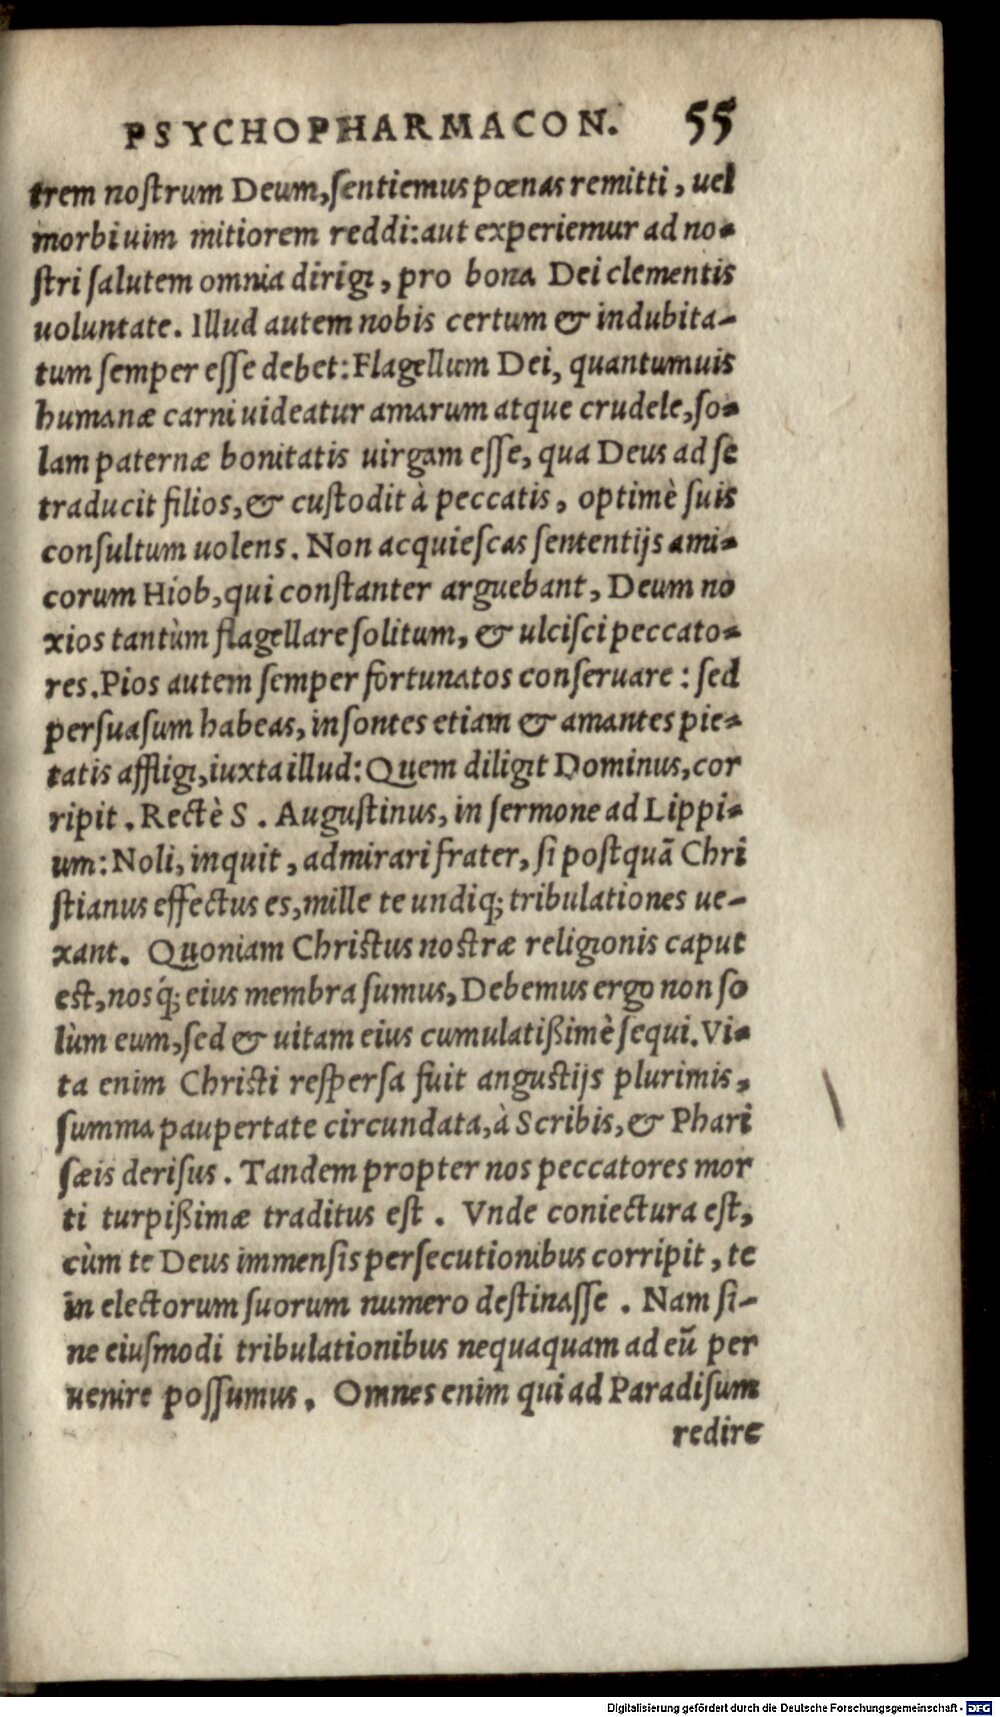 PSYCHOPHARMACON. 55
trem noſtrum Deum, ſentiemus pœnas remitti, uel
morbi uim mitiorem reddi: aut experiemur ad no-
ſtri ſalutem omnia dirigi, pro bona Dei clementis
uoluntate. Illud autem nobis certum & indubita-
tum ſemper eſſe debet: Flagellum Dei, quantumuis
humanæ carni uideatur amarum atque crudele, ſo-
lam paternæ bonitatis uirgam eſſe, qua Deus ad ſe
traducit filios, & cuſtodit à peccatis, optimè ſuis
conſultum uolens. Non acquieſcas ſententijs ami-
corum Hiob, qui conſtanter arguebant, Deum no
xios tantùm flagellare ſolitum, & ulciſci peccato-
res. Pios autem ſemper fortunatos conſeruare: ſed
perſuaſum habeas, inſontes etiam & amantes pie-
tatis affligi, iuxta illud: Quem diligit Dominus, cor
ripit. Rectè S. Auguſtinus, in ſermone ad Lippi-
um: Noli, inquit, admirari frater, ſi poſtquā Chri
ſtianus effectus es, mille te undiq; tribulationes ue-
xant. Quoniam Chriſtus noſtræ religionis caput
eſt, nosq́; eius membra ſumus, Debemus ergo non ſo
lùm eum, ſed & uitam eius cumulatißimè ſequi. Vi-
ta enim Chriſti reſperſa fuit anguſtijs plurimis,
ſumma paupertate circundata, à Scribis, & Phari
ſæis deriſus. Tandem propter nos peccatores mor
ti turpißimæ traditus eſt. Vnde coniectura eſt,
cùm te Deus immenſis perſecutionibus corripit, te
in electorum ſuorum numero deſtinaſſe. Nam ſi-
ne eiuſmodi tribulationibus nequaquam ad eū per
uenire poſſumus. Omnes enim qui ad Paradiſum
redire
Digitalisierung gefördert durch die Deutsche Forschungsgemeinschaft - DFG